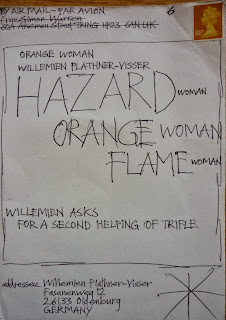 BY AIR MAIL - PAR AVION
from: Simon Warren
6
ORANGE WOMAN
WILLEMIEN PLATHNER-VISSER
HAZARD WOMAN
ORANGE WOMAN
FLAME WOMAN
WILLEMIEN ASKS
FOR A SECOND HELPING OF TRIFLE
addressee: Willemien Plathner-Visser
Fasanenweg 12
26133 Oldenburg
GERMANY